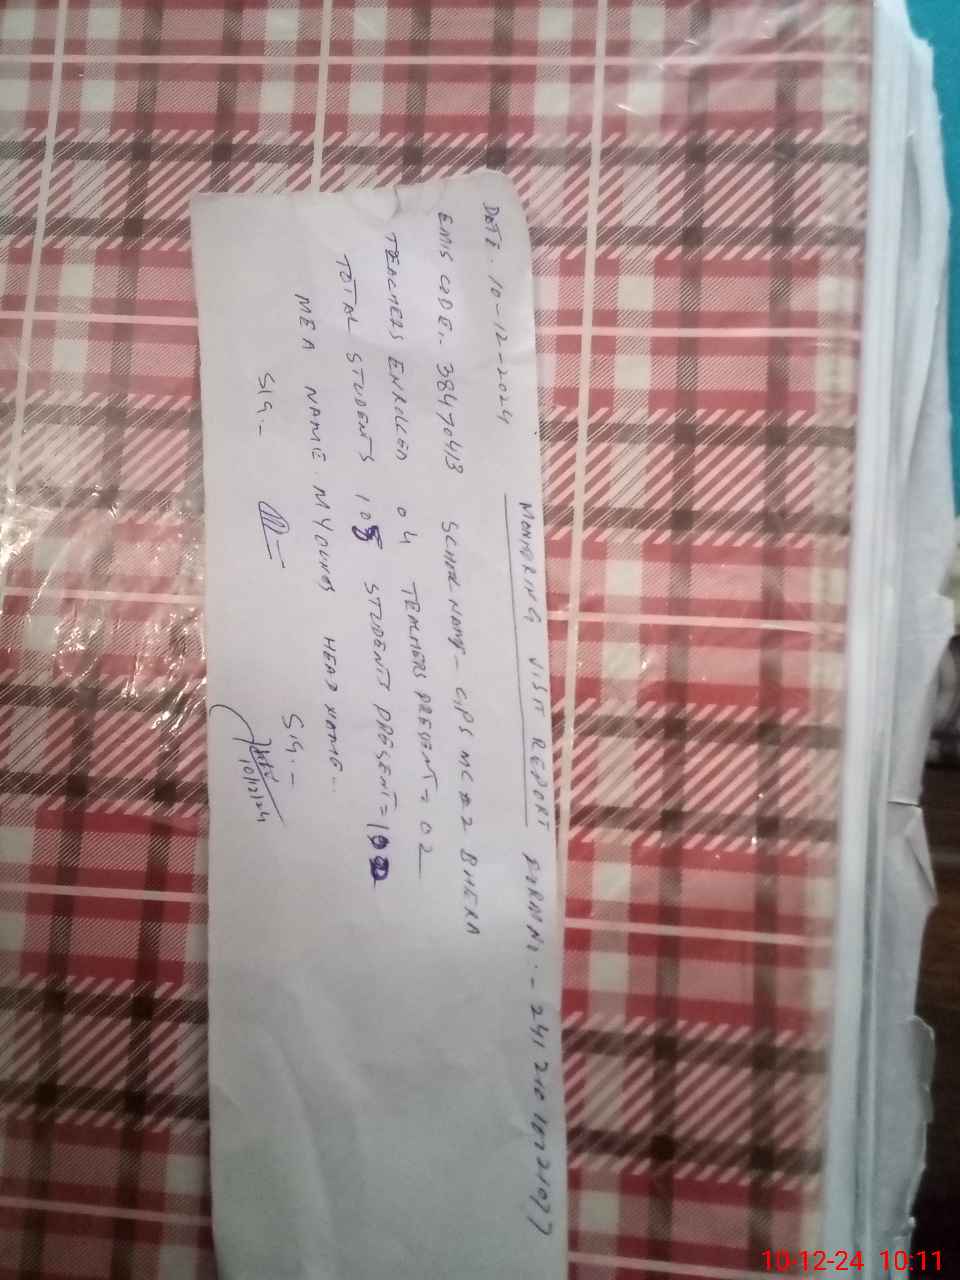 MONITRING VISIT REPORT FORM NO:-
DATE. 10-12-2024
EMIS CODE:- 38470413 SCHOOL NAME- GPS MC 2 BHERA
TEACHERS ENROLLED 04 TEACHERS PRESENT = 02
TOTAL STUDENTS 108 STUDENTS PRESENT =
MEA NAME. M YOUNAS HEAD NAME:-
SIG.- SIG.-
10/12/24
10-12-24 10:11